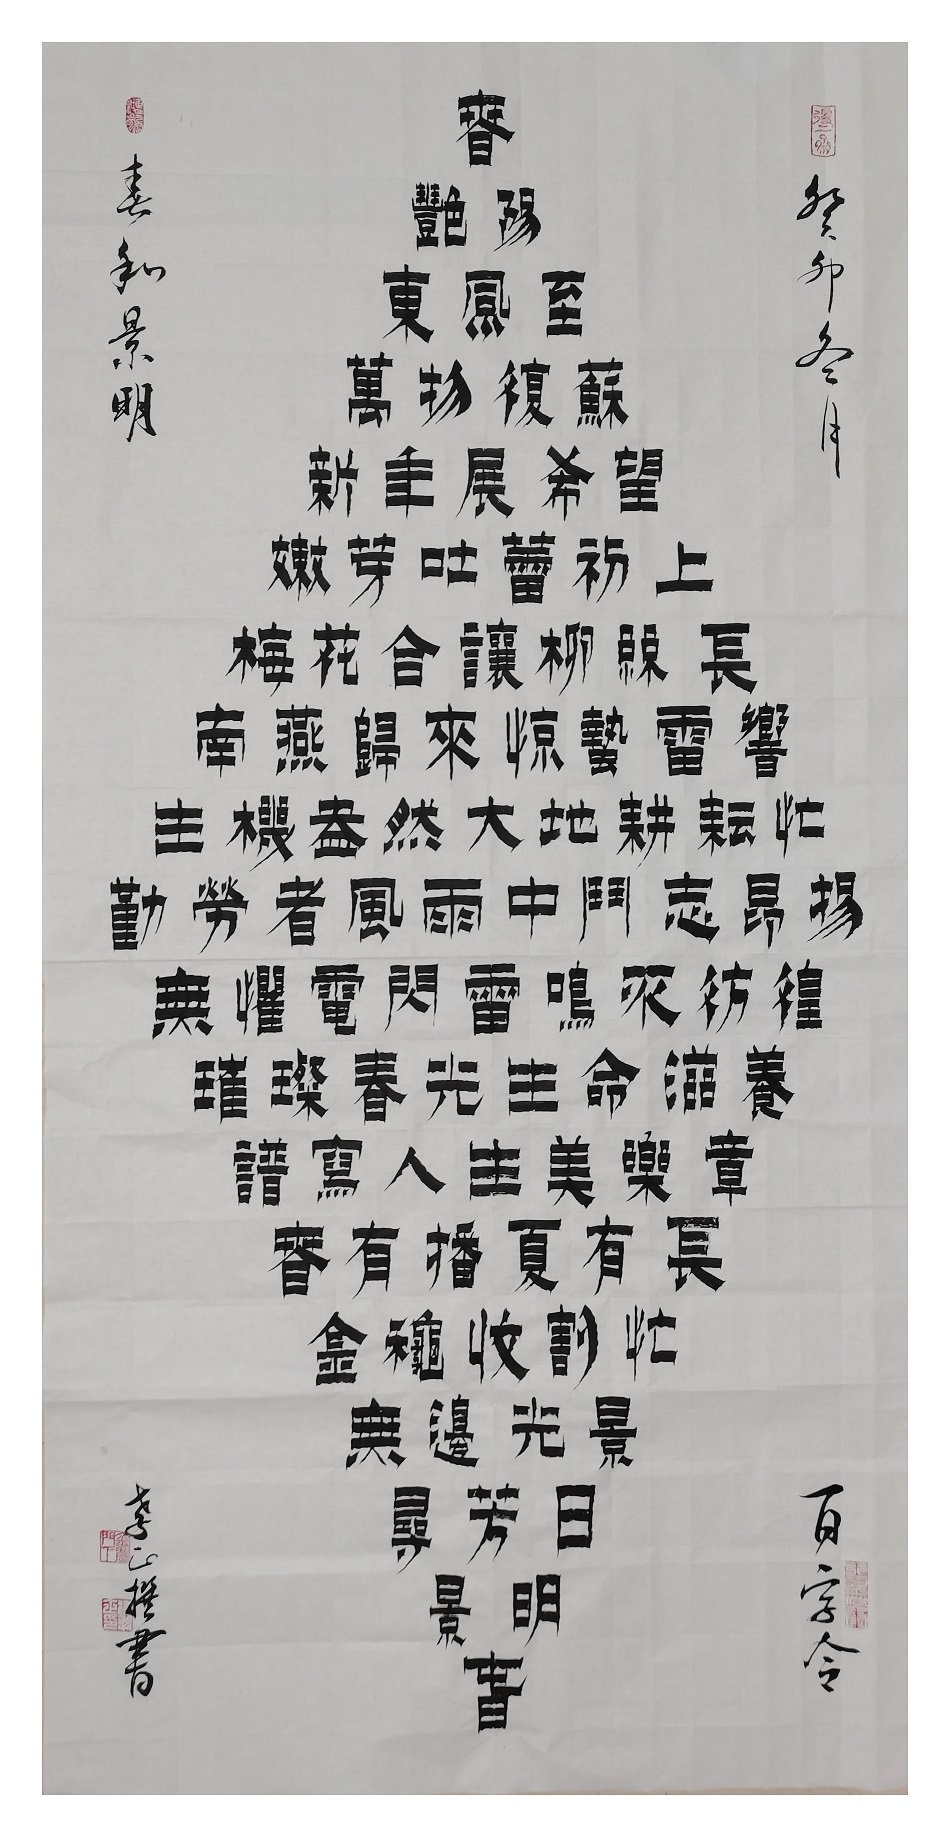 春
艷陽
東風至
萬物復蘇
新年展希望
嫩芽吐蕾初上
梅花合讓柳長
南燕歸來惊蟄雷響
生機盎然大地耕耘忙
勤勞者風雨中鬥志昂揚
無懼電閃雷鳴不彷徨
璀璨春光生命滋養
譜寫人生美樂章
春有播夏有長
金穐收割忙
無邊光景
尋芳日
景明
春
癸卯冬月
百字令
春和景明
撰書